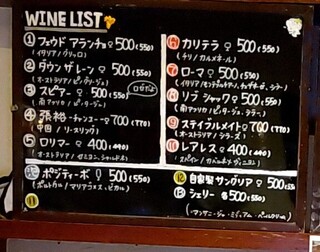 WINE LIST
① フェウド アランチョ ♀ 500(550)
(イタリア / グリッロ)
② ダウン ザ レーン ♀ 500(550)
(オーストラリア / ピノ・グリージョ)
③ スピアー ♀ 500(550)
(南アフリカ / ピノタージュ) ロゼだよ
④ 張裕-チャンユー ♀ 700(770)
中国 / リースリング)
⑤ ロリマー ♀ 400(440)
(オーストラリア / セミヨン、シャルドネ)
ポジティーボ ♀ 500(550)
(ポルトガル / マリアゴメス・ビカル)
⑪
カリテラ ♀ 500(550)
(チリ / カルメネール)
ローマ ♀ 500(550)
(イタリア /
シャック ♀ 500(550)
(南アフリカ / ピノタージュ、シラー)
⑨ ステイブルメイト ♀ 700(770)
(オーストラリア / シラーズ)
⑩ レアレス ♀ 400(440)
(スペイン /
⑫ 自家製サングリア ♀ 500(550)
⑬ シェリー 500(550)
(マンサニージャ・ミディアム・ペールクリーム)